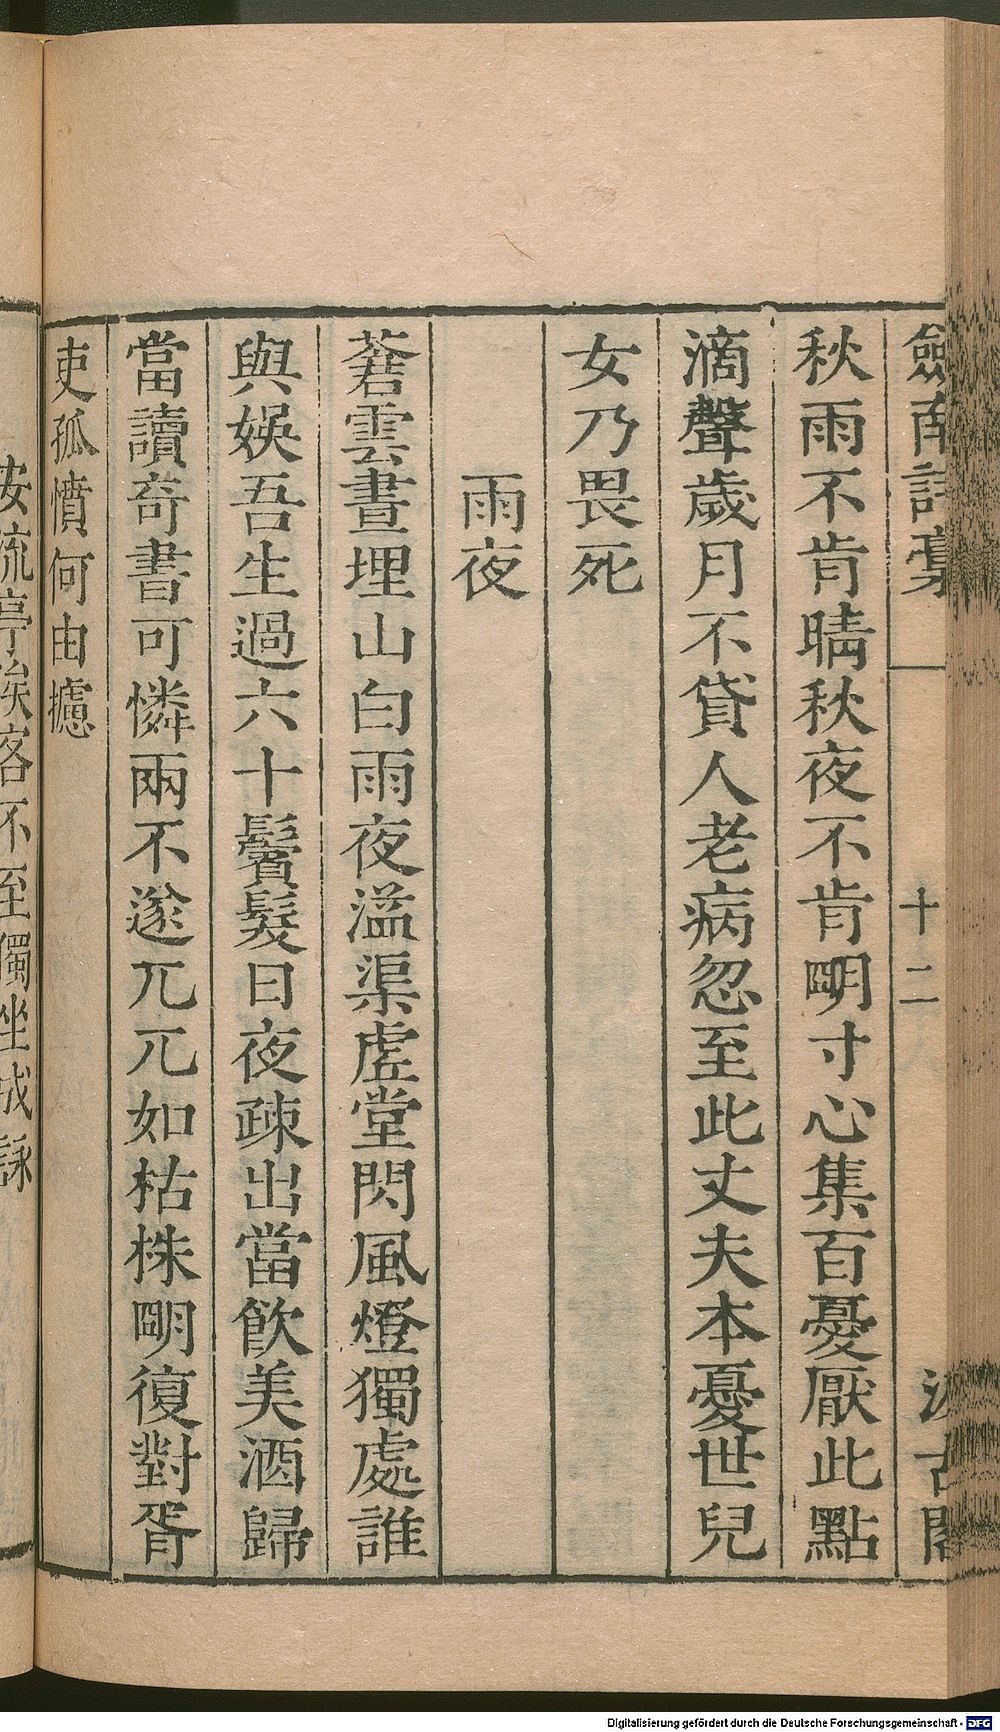 劎南詩稾 十二 汲古閣
秋雨不肯晴秋夜不肯明寸心集百憂厭此點
滴聲歲月不貸人老病忽至此丈夫本憂世兒
女乃畏死
雨夜
蒼雲晝埋山白雨夜溢渠虗堂閃風燈獨處誰
與娛吾生過六十鬢髮日夜疎出當飲美酒歸
當讀奇書可憐兩不遂兀兀如枯株明復對胥
吏孤憤何由攄
安流亭俟客不至獨坐成詠
Digitalisierung gefördert durch die Deutsche Forschungsgemeinschaft - DFG